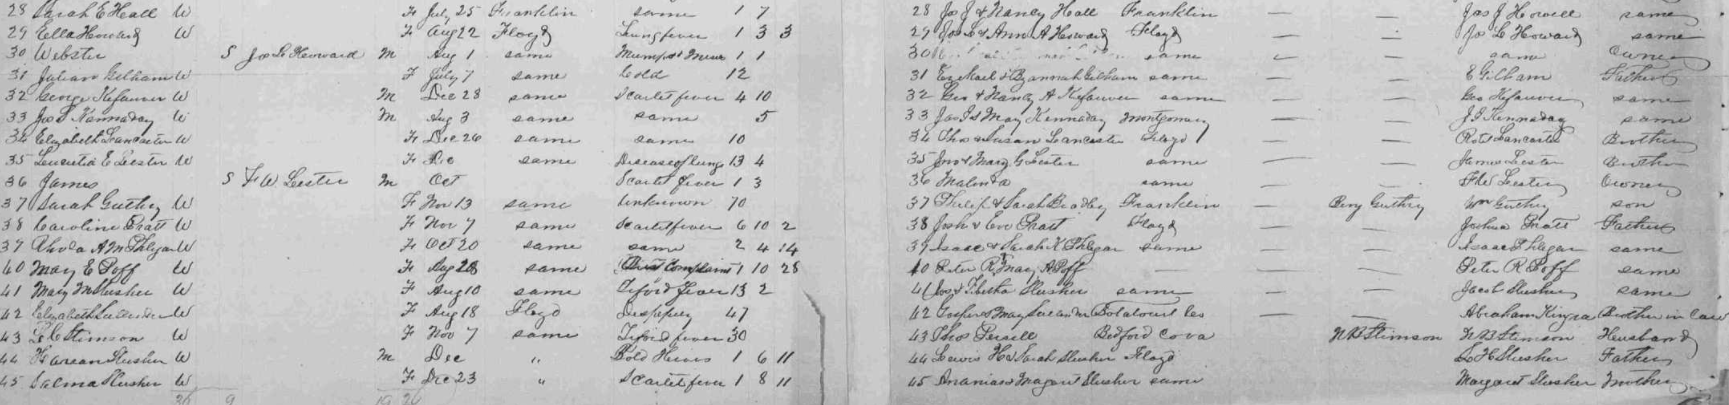 28 Sarah E Hall W F July 25 Franklin same 1 7 28 Jas J & Nancy Hall Franklin — — Jas J Howell same
29 Ella Howard W F Aug 22 Floyd Lung fever 1 3 3 29 Jos L & Ann A Howard Floyd — — Jo L Howard same
30 Webster S Jos L Howard M Aug 1 same 1 1 30 same — — same Owner
31 Julian Gilham W F July 7 same Cold 12 31 Ezekiel & Gilham same — — E Gilham Father
32 George Kefauver W M Dec 28 same Scarlet fever 4 10 32 Geo & Nancy A Kefauver same — — Geo Kefauver same
33 Jos Kannaday W M Aug 3 same same 5 33 Jas & May Kennaday Montgomery — — Kennaday same
34 Elizabeth Lancaster W F Dec 26 same same 10 34 Thos & Susan Lancaster Floyd — — Lancaster Brother
35 Lucretia E Lester W F Dec same Disease of lungs 13 4 35 Jno & Mary G Lester same — — James Lester Brother
36 James S F W Lester M Oct Scarlet fever 1 3 36 Malinda same — — F W Lester Owner
37 Sarah Guthry W F Nov 13 same Unknown 70 37 Philip & Sarah Bradley Franklin — Guthry Wm Guthry son
38 Caroline Pratt W F Nov 7 same Scarlet fever 6 10 2 38 Josh & Eve Pratt Floyd — — Joshua Pratt Father
39 Rhoda A M Phlegar W F Oct 20 same same 2 4 14 39 Isaac & Sarah K Phlegar same — — Isaac Phlegar same
40 Mary E Poff W F Aug 28 same Complaint 1 10 28 40 Peter R & Mary A Poff — — — Peter R Poff same
41 Mary M Slusher W F Aug 10 same Tiford fever 13 2 41 & Tibetha Slusher same — — Jacob Slusher same
42 Elizabeth W F Aug 18 Floyd Dropsey 47 42 & May Botatourt Co — — Abraham Brother in Law
43 Stimson W F Nov 7 same Tiford fever 30 43 Thos Bedford Co va N B Stimson N B Stimson Husband
44 Slusher W M Dec " Bold Hives 1 6 11 44 Lewis H & Sarah Slusher Floyd L H Slusher Father
45 Salma Slusher W F Dec 23 " Scarlet fever 1 8 11 45 Ananias & Magaret Slusher same Margaret Slusher Mother